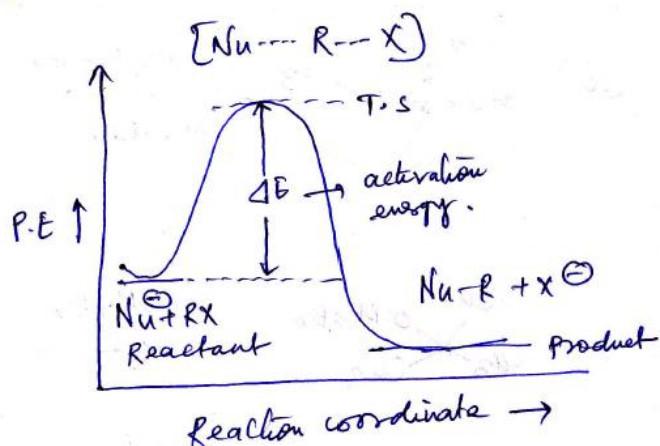 [Nu---- R--- X]
T.S
ΔE → activation
energy.
P.E ↑
Nu⊖+RX
Reactant
Nu-R + X⊖
Product
Reaction coordinate →